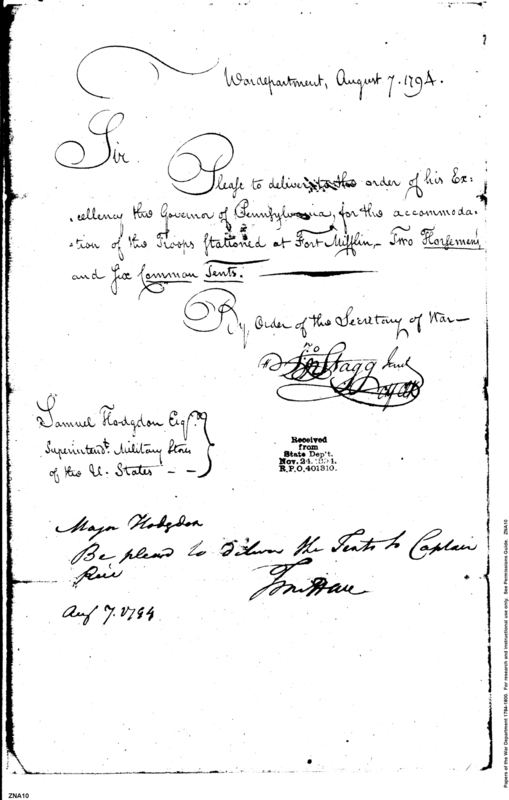 War department, August 7. 1794.
Sir
Please to deliver to the order of his Ex-
cellency the Governor of Pennsylvania, for the accommoda-
tion of the Troops stationed at Fort Mifflin, Two Horsemens
and six Common Tents.
By Order of the Secretary of War
Jno Stagg Junr
Samuel Hodgdon Esqr
Superintendt Military Stores
of the U. States
Received
from
State Dep't.
Nov. 24, 1894.
R.P.O. 401310.
Major Hodgdon
Be pleasd to deliver the Tents to Captain
Rice
Aug 7. 1794
ZNA10
Papers of the War Department 1784-1800. For research and instructional use only. See Permissions Guide. ZNA10